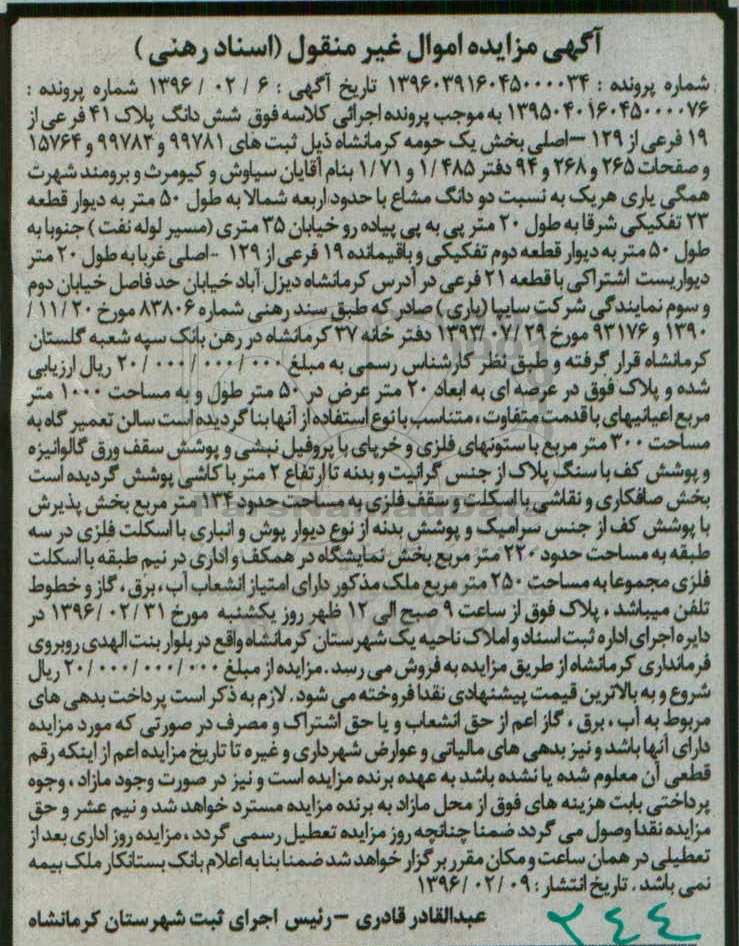 آگهی مزایده اموال غیر منقول (اسناد رهنی)
شماره پرونده : ۱۳۹۶۰۳۹۱۶۰۴۵۰۰۰۰۳۴ تاریخ آگهی : ۶ / ۰۲ / ۱۳۹۶ شماره پرونده :
۱۳۹۵۰۴۰۱۶۰۴۵۰۰۰۰۷۶ به موجب پرونده اجرائی کلاسه فوق شش دانگ پلاک ۴۱ فرعی از
۱۹ فرعی از ۱۲۹ –اصلی بخش یک حومه کرمانشاه ذیل ثبت های ۹۹۷۸۱ و ۹۹۷۸۳ و ۱۵۷۶۴
و صفحات ۲۶۵ و ۲۶۸ و ۹۴ دفتر ۱/۴۸۵ و ۱/۷۱ بنام آقایان سیاوش و کیومرث و برومند شهرت
همگی یاری هریک به نسبت دو دانگ مشاع با حدود اربعه شمالا به طول ۵۰ متر به دیوار قطعه
۲۳ تفکیکی شرقا به طول ۲۰ متر پی به پی پیاده رو خیابان ۳۵ متری (مسیر لوله نفت) جنوبا به
طول ۵۰ متر به دیوار قطعه دوم تفکیکی و باقیمانده ۱۹ فرعی از ۱۲۹ -اصلی غربا به طول ۲۰ متر
دیواریست اشتراکی با قطعه ۲۱ فرعی در آدرس کرمانشاه دیزل آباد خیابان حد فاصل خیابان دوم
و سوم نمایندگی شرکت سایپا (یاری) صادر که طبق سند رهنی شماره ۸۳۸۰۶ مورخ ۲۰/ ۱۱/
۱۳۹۰ و ۹۳۱۷۶ مورخ ۲۹/ ۰۷/ ۱۳۹۳ دفتر خانه ۳۷ کرمانشاه در رهن بانک سپه شعبه گلستان
کرمانشاه قرار گرفته و طبق نظر کارشناس رسمی به مبلغ ۲۰/۰۰۰/۰۰۰/۰۰۰ ریال ارزیابی
شده و پلاک فوق در عرصه ای به ابعاد ۲۰ متر عرض در ۵۰ متر طول و به مساحت ۱۰۰۰ متر
مربع اعیانیهای با قدمت متفاوت ، متناسب با نوع استفاده از آنها بنا گردیده است سالن تعمیر گاه به
مساحت ۳۰۰ متر مربع با ستونهای فلزی و خرپای با پروفیل نبشی و پوشش سقف ورق گالوانیزه
و پوشش کف با سنگ پلاک از جنس گرانیت و بدنه تا ارتفاع ۲ متر با کاشی پوشش گردیده است
بخش صافکاری و نقاشی با اسکلت و سقف فلزی به مساحت حدود ۱۳۴ متر مربع بخش پذیرش
با پوشش کف از جنس سرامیک و پوشش بدنه از نوع دیوار پوش و انباری با اسکلت فلزی در سه
طبقه به مساحت حدود ۲۲۰ متر مربع بخش نمایشگاه در همکف و اداری در نیم طبقه با اسکلت
فلزی مجموعا به مساحت ۲۵۰ متر مربع ملک مذکور دارای امتیاز انشعاب آب ، برق ، گاز و خطوط
تلفن میباشد ، پلاک فوق از ساعت ۹ صبح الی ۱۲ ظهر روز یکشنبه مورخ ۳۱ /۰۲ / ۱۳۹۶ در
دایره اجرای اداره ثبت اسناد و املاک ناحیه یک شهرستان کرمانشاه واقع در بلوار بنت الهدی روبروی
فرمانداری کرمانشاه از طریق مزایده به فروش می رسد . مزایده از مبلغ ۲۰/۰۰۰/۰۰۰/۰۰۰ ریال
شروع و به بالاترین قیمت پیشنهادی نقدا فروخته می شود . لازم به ذکر است پرداخت بدهی های
مربوط به آب ، برق ، گاز اعم از حق انشعاب و یا حق اشتراک و مصرف در صورتی که مورد مزایده
دارای آنها باشد و نیز بدهی های مالیاتی و عوارض شهرداری و غیره تا تاریخ مزایده اعم از اینکه رقم
قطعی آن معلوم شده یا نشده باشد به عهده برنده مزایده است و نیز در صورت وجود مازاد ، وجوه
پرداختی بابت هزینه های فوق از محل مازاد به برنده مزایده مسترد خواهد شد و نیم عشر و حق
مزایده نقدا وصول می گردد ضمنا چنانچه روز مزایده تعطیل رسمی گردد ، مزایده روز اداری بعد از
تعطیلی در همان ساعت و مکان مقرر برگزار خواهد شد ضمنا بنا به اعلام بانک بستانکار ملک بیمه
نمی باشد . تاریخ انتشار : ۰۹/ ۰۲/ ۱۳۹۶
عبدالقادر قادری –رئیس اجرای ثبت شهرستان کرمانشاه
۲۴۴